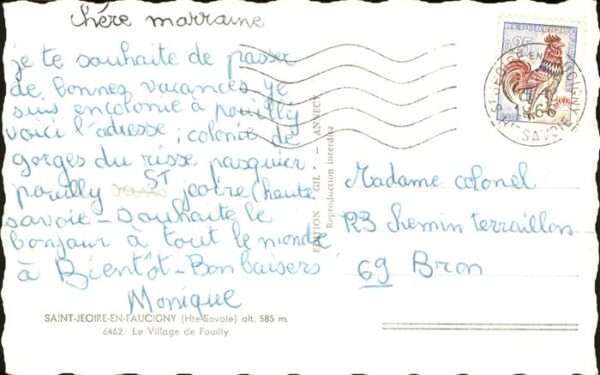 chère marraine
je te souhaite de passer
de bonnes vacances je
suis en colonie à pouilly
voici l'adresse ; colonie de
gorges du risse pasquier
pouilly ST jeoire (haute
savoie - souhaite le
bonjour à tout le monde
à Bientôt - Bon baisers
Monique
SAINT-JEOIRE-EN-FAUCIGNY (Hte-Savoie) alt. 585 m.
6462 Le Village de Pouilly
EDITION GIL - ANNECY
Reproduction interdite
Madame colonel
123 chemin terraillon
69 Bron